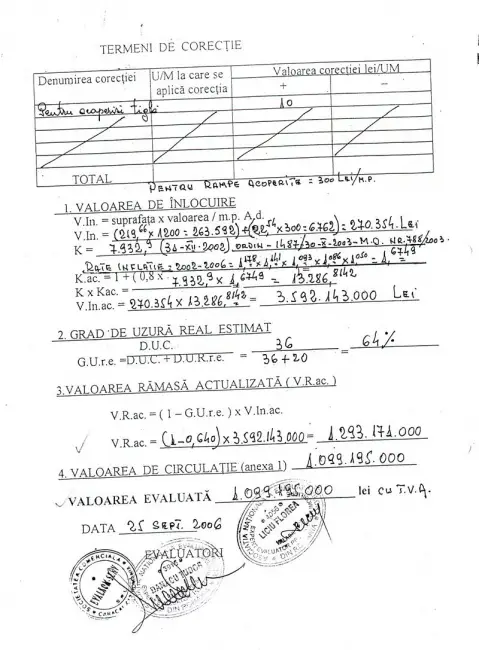 TERMENI DE CORECŢIE
Denumirea corecţiei U/M la care se aplică corecţia Valoarea corecţiei lei/UM
+ −
Pentru acoperiri ţiglă 10
TOTAL
PENTRU RAMPE ACOPERITE = 300 LEI/M.P.
1. VALOAREA DE ÎNLOCUIRE
V.În. = suprafaţa x valoarea / m.p. A.d.
V.În. = (219,66 x 1200 = 263.592) + (22,54 x 300 = 6762) = 270.354. LEI
K = 7.932,9 (31-XII-2002) ORDIN - 1487/30-X-2003 - M.O. NR. 788/2003.
RATE INFLAŢIE: 2002-2006 = 1,178 x 1,141 x 1,093 x 1,086 x 1,050 = 1,6749
K.ac. = 1 + ( 0,8 x
K x Kac. = 7.932,9 x 1,6749 = 13.286,8142
V.În.ac. = 270.354 x 13.286,8142 = 3.592.143.000 LEI
2. GRAD DE UZURĂ REAL ESTIMAT
G.U.r.e. = D.U.C. / D.U.C. + D.U.R.r.e. = 36 / 36+20 = 64%
3.VALOAREA RĂMASĂ ACTUALIZATĂ ( V.R.ac. )
V.R.ac. = ( 1 – G.U.r.e. ) x V.În.ac.
V.R.ac. = (1-0,640) x 3.592.143.000 = 1.293.171.000
4. VALOAREA DE CIRCULAŢIE (anexa 1) 1.099.195.000
VALOAREA EVALUATĂ 1.099.195.000 lei cu T.V.A.
DATA 25 SEPT. 2006
EVALUATORI
LICIU FLOREA
DANILCU TUDOR
SOCIETATEA COMERCIALA
CARACAL